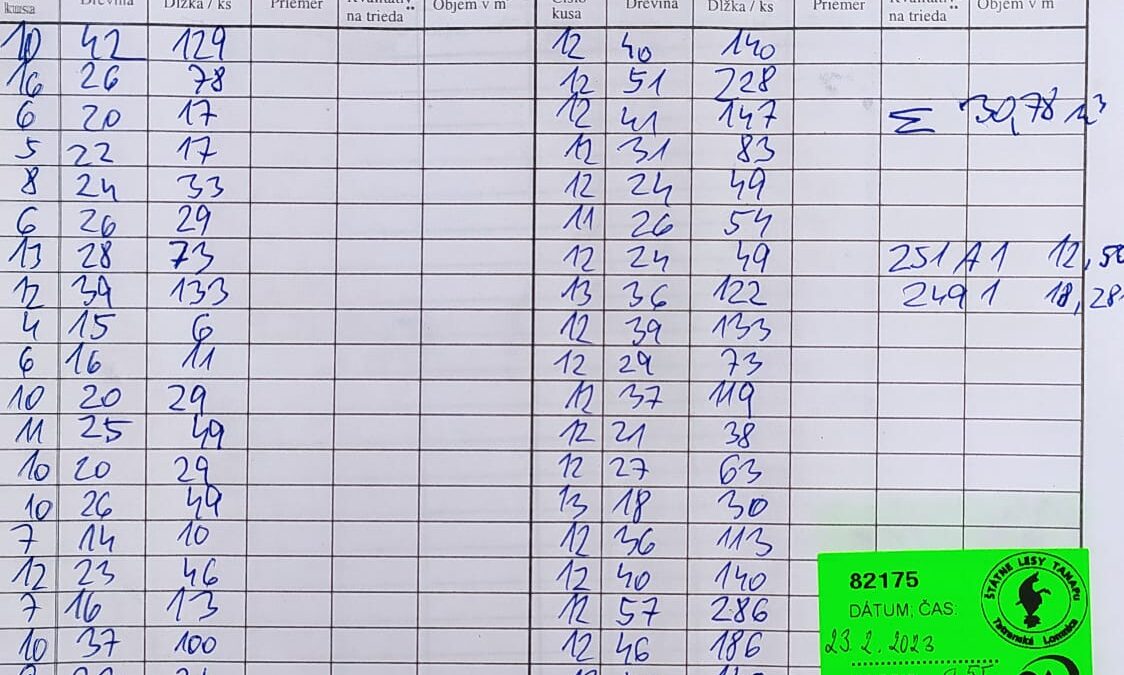 kusa Drevina Dĺžka / ks Priemer na trieda Objem v m
10 42 129
16 26 78
6 20 17
5 22 17
8 24 33
6 26 29
13 28 73
12 39 133
4 15 6
6 16 11
10 20 29
11 25 49
10 20 29
10 26 49
7 14 10
12 23 46
7 16 13
10 37 100
Číslo kusa Drevina Dĺžka / ks Priemer na trieda Objem v m
12 40 140
12 51 228
12 41 147
12 31 83
12 24 49
11 26 54
12 24 49
13 36 122
12 39 133
12 29 73
12 37 119
12 21 38
12 27 63
13 18 30
12 36 113
12 40 140
12 57 286
12 46 186
Σ 30,78 m³
251 A 1 12,50
249 1 18,28
82175
DÁTUM, ČAS:
23.2.2023
ŠTÁTNE LESY TANAPu
Tatranská Lomnica